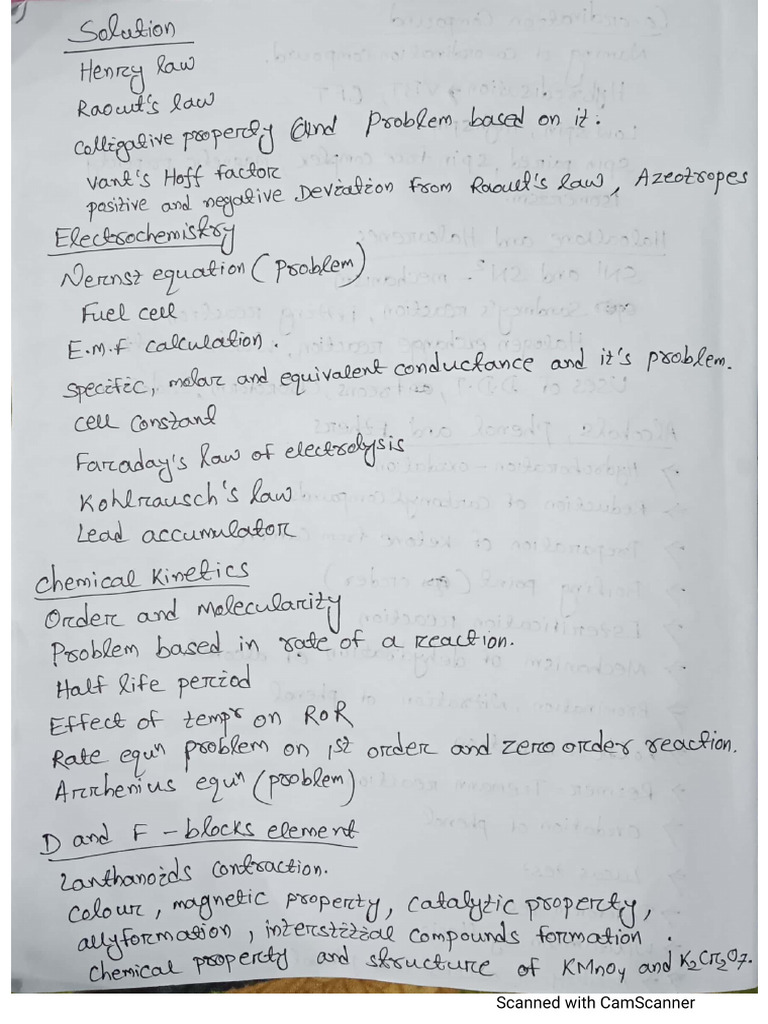 Solution
Henry law
Raoult's law
Colligative property and Problem based on it.
Vant's Hoff factor
positive and negative Deviation from Raoult's law, Azeotropes
Electrochemistry
Nernst equation (Problem)
Fuel cell
E.m.f calculation.
Specific, molar and equivalent conductance and it's problem.
Cell Constant
Faraday's law of electrolysis
Kohlrausch's law
Lead accumulator
Chemical Kinetics
Order and Molecularity
Problem based in rate of a reaction.
Half life period
Effect of tempr on RoR
Rate equn problem on 1st order and zero order reaction.
Arrhenius equn (problem)
D and F - blocks element
Lanthanoids contraction.
Colour, magnetic property, catalytic property,
allyformation, interstitial compounds formation.
Chemical property and structure of KMnO4 and K2Cr2O7.
Scanned with CamScanner